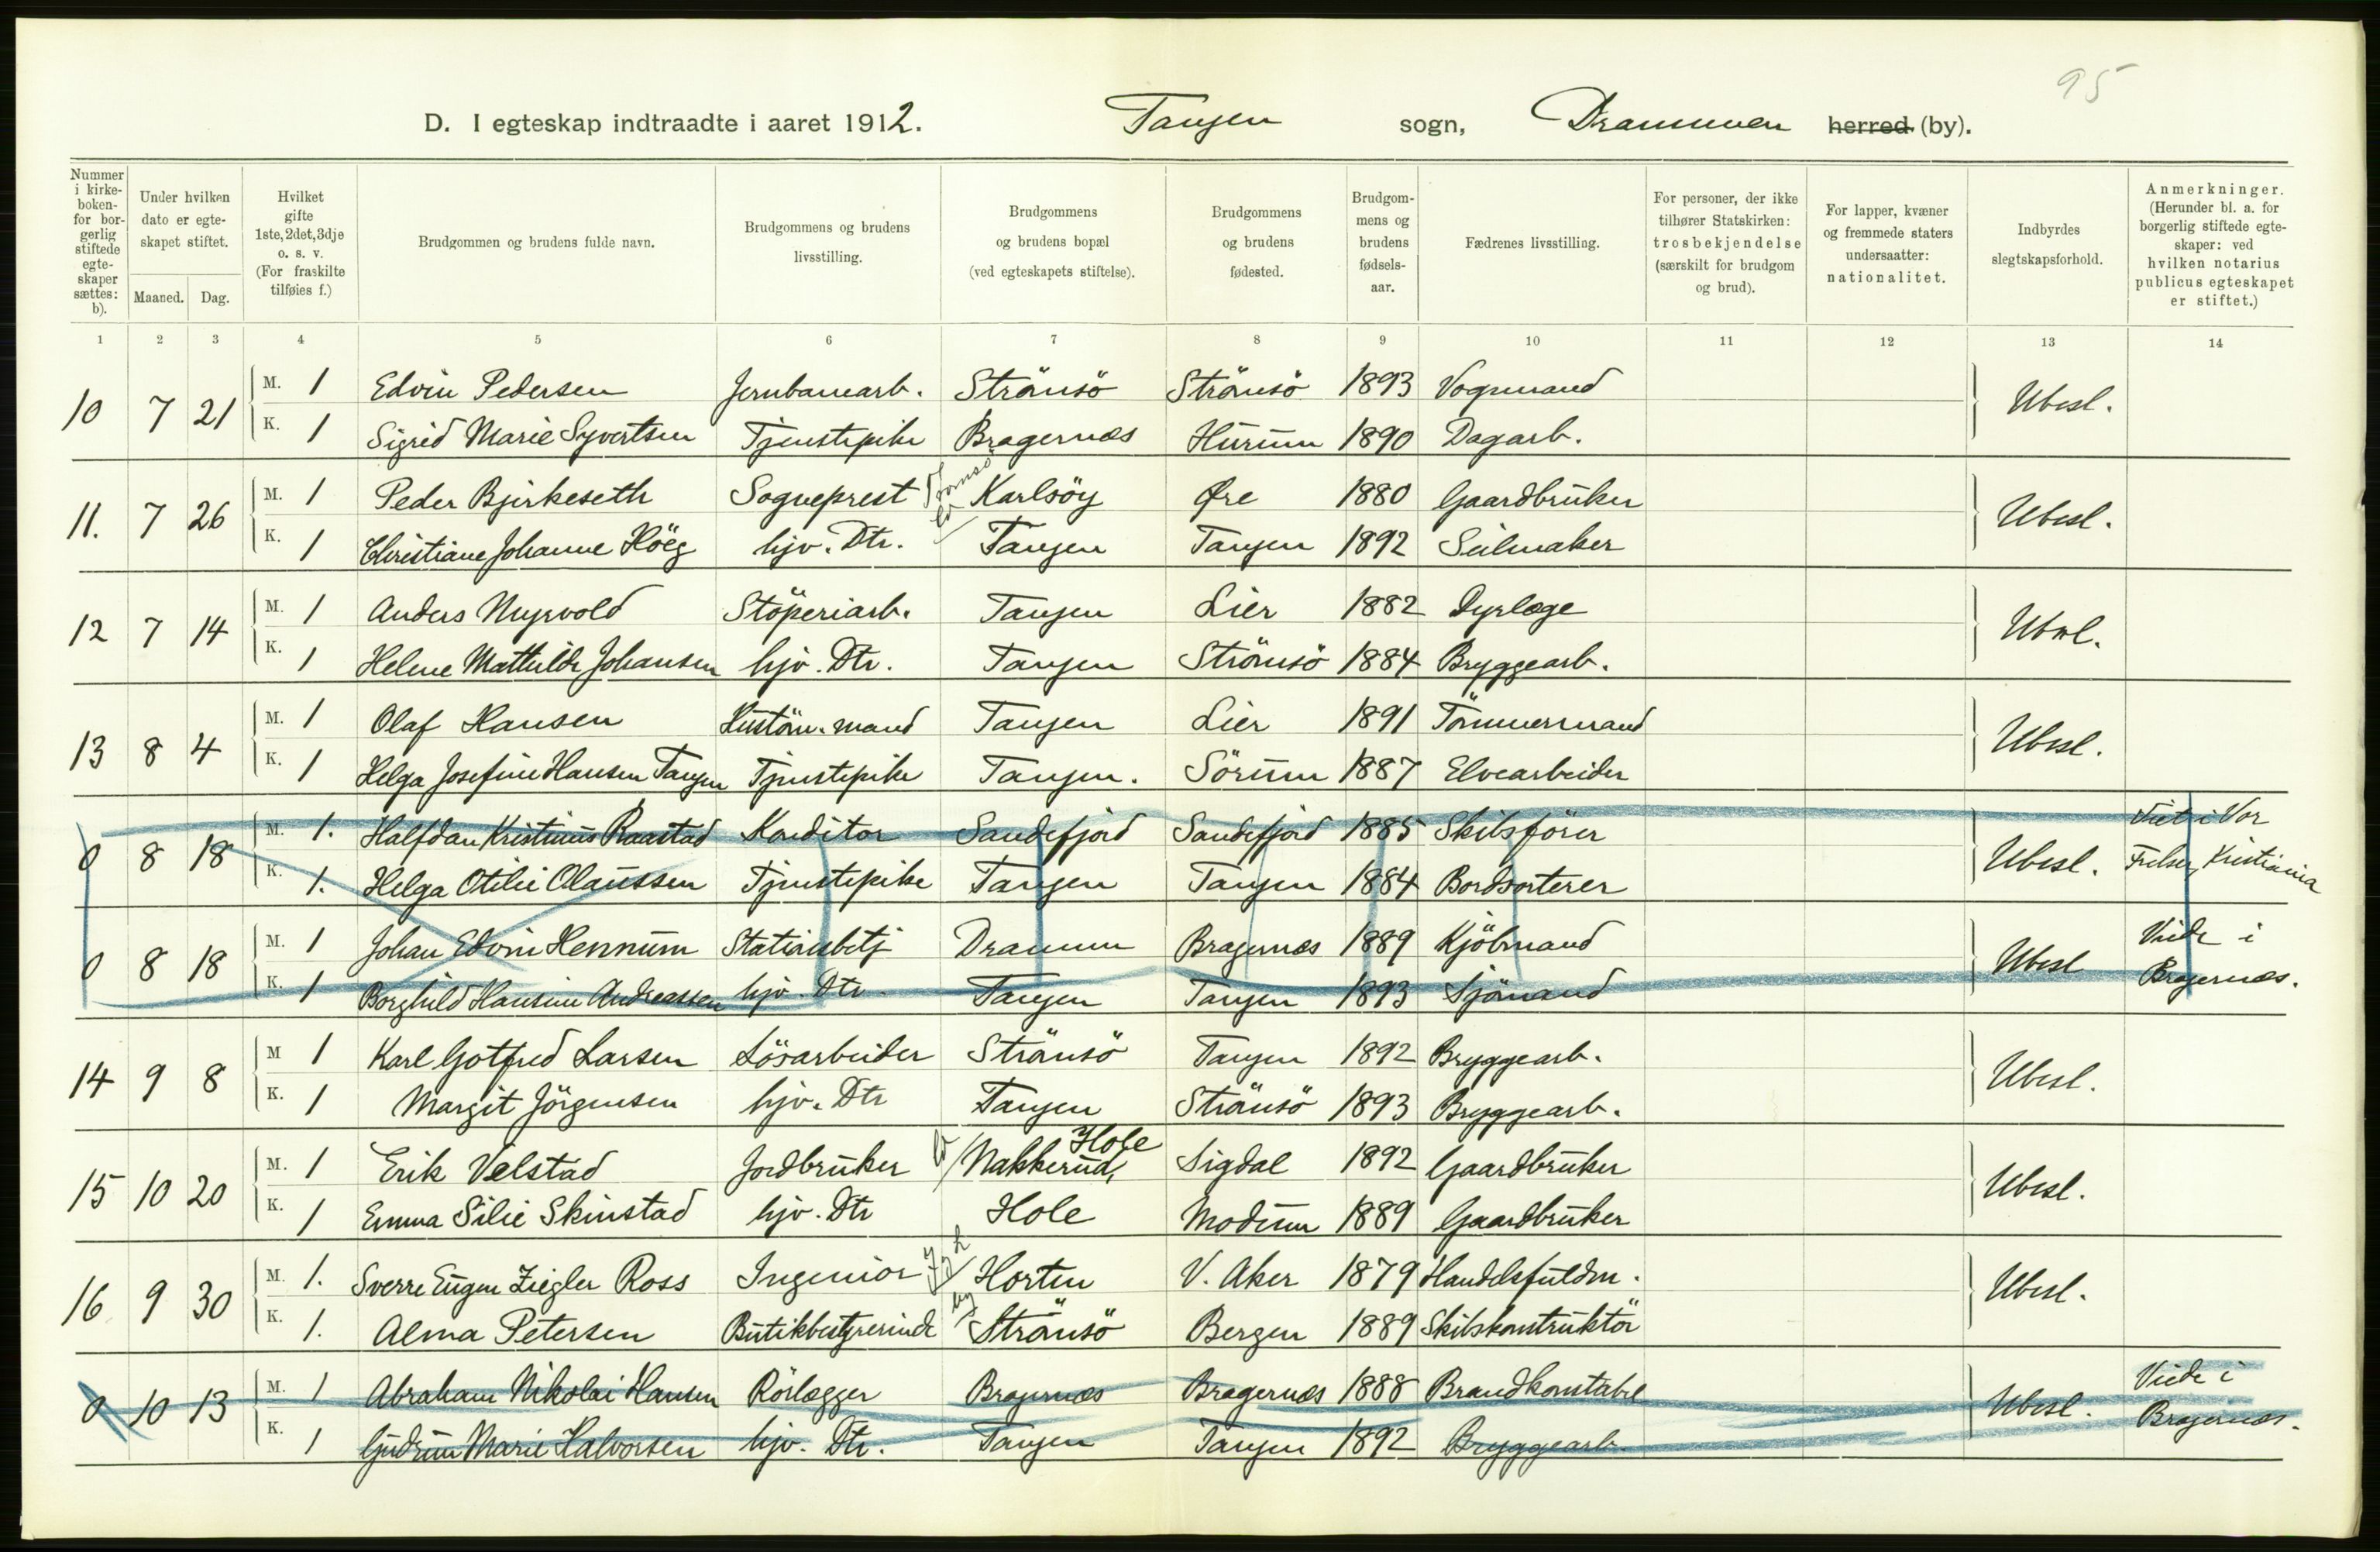 95
D. I egteskap indtraadte i aaret 1912. Tangen sogn, Drammen herred (by).
Nummer i kirke-boken- for bor-gerlig stiftede egte-skaper sættes: b).
Under hvilken dato er egte-skapet stiftet.
Maaned. Dag.
Hvilket gifte 1ste, 2det, 3dje o. s. v. (For fraskilte tilføies f.)
Brudgommen og brudens fulde navn.
Brudgommens og brudens livsstilling.
Brudgommens og brudens bopæl (ved egteskapets stiftelse).
Brudgommens og brudens fødested.
Brudgom-mens og brudens fødsels-aar.
Fædrenes livsstilling.
For personer, der ikke tilhører Statskirken: trosbekjendelse (særskilt for brudgom og brud).
For lapper, kvæner og fremmede staters undersaatter: nationalitet.
Indbyrdes slegtskapsforhold.
Anmerkninger. (Herunder bl. a. for borgerlig stiftede egte-skaper: ved hvilken notarius publicus egteskapet er stiftet.)
1 2 3 4 5 6 7 8 9 10 11 12 13 14
10 7 21 M. 1 Edvin Pedersen Jernbanearb. Strömsö Strömsö 1893 Vognmand Ubesl.
K. 1 Sigrid Marie Syvertsen Tjenstepike Bragernæs Hurum 1890 Dagarb.
11. 7 26 M. 1 Peder Bjerkeseth Sogneprest Tromsö Karlsöy Øre 1880 Gaardbruker Ubesl.
K. 1 Christiane Johanne Höeg hjv. Dtr. Tangen Tangen 1892 Seilmaker
12 7 14 M. 1 Anders Myrvold Stöperiarb. Tangen Lier 1882 Dyrlæge Ubesl.
K. 1 Helene Mathilde Johansen hjv. Dtr. Tangen Strömsö 1884 Bryggearb.
13 8 4 M. 1 Olaf Hansen Hustöm. mand Tangen Lier 1891 Tömmermand Ubesl.
K. 1 Helga Josefine Hansen Tangen Tjenstepike Tangen. Sörum 1887 Elvearbeider
0 8 18 M. 1. Halfdan Kristinius Raastad Konditor Sandefjord Sandefjord 1885 Skibsförer Ubesl. Viet i Vor
K. 1. Helga Otilie Olaussen Tjenstepike Tangen Tangen 1884 Bordsorterer Frelser, Kristiania
0 8 18 M. 1 Johan Edvin Hennum Stationsbetj Drammen Bragernæs 1889 Kjöbmand Ubesl Viede i
K. 1 Borghild Hansine Andreassen hjv. Dtr. Tangen Tangen 1893 Sjömand Bragernæs.
14 9 8 M 1 Karl Gotfred Larsen Lösarbeider Strömsö Tangen 1892 Bryggearb. Ubesl.
K. 1 Margit Jörgensen hjv. Dtr Tangen Strömsö 1893 Bryggearb.
15 10 20 M. 1 Erik Velstad Jordbruker Nakkerud, Hole Sigdal 1892 Gaardbruker Ubesl.
K. 1 Emma Silie Skinstad hjv. Dtr Hole Modum 1889 Gaardbruker
16 9 30 M. 1. Sverre Eugen Ziegler Ross Ingeniör Horten V. Aker 1879 Handelsfuldm. Ubesl.
K. 1. Alma Petersen Butikbestyrerinde by Strömsö Bergen 1889 Skibskonstruktör
0 10 13 M. 1 Abraham Nikolai Hansen Rörlægger Bragernæs Bragernæs 1888 Brandkonstabel Ubesl. Viede i
K. 1 Gudrun Marie Halvorsen hjv. Dtr. Tangen Tangen 1892 Bryggearb. Bragernæs.